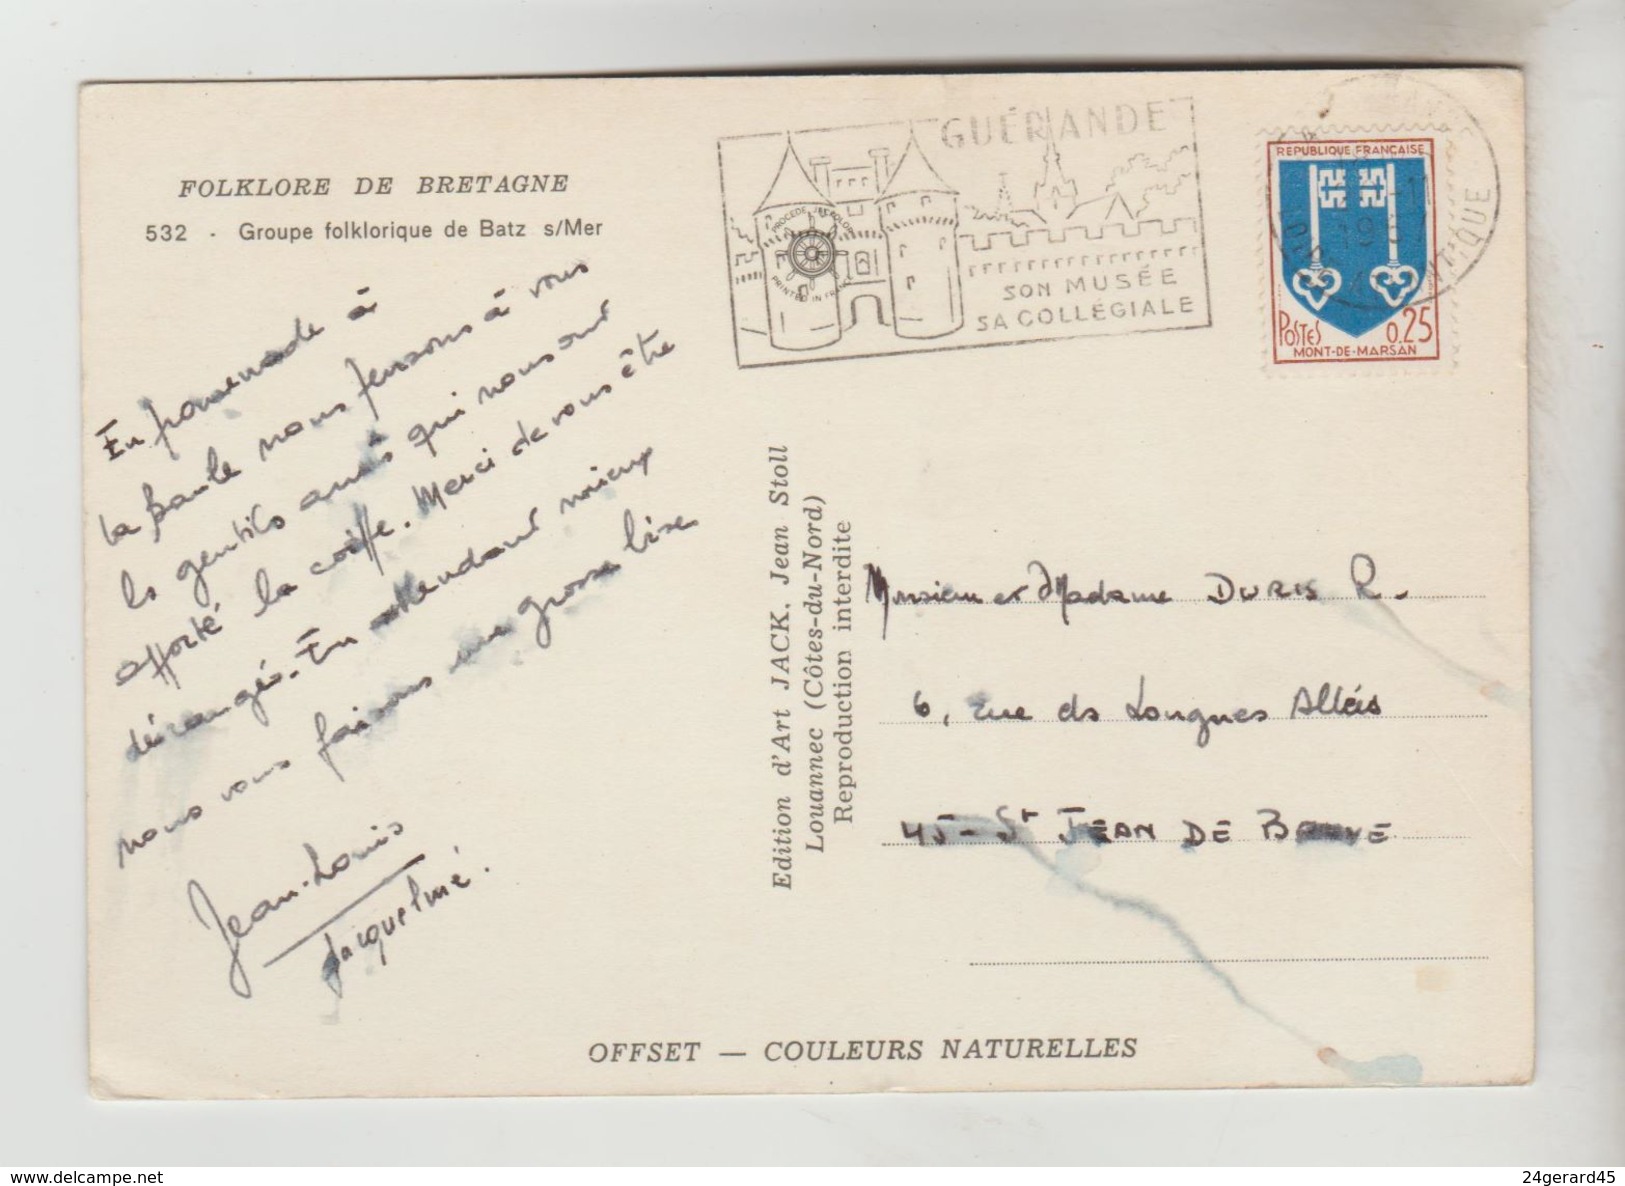 FOLKLORE DE BRETAGNE
532 - Groupe folklorique de Batz s/Mer
En promenade à
la Baule nous pensons à vous
les gentils amis qui nous ont
apporté la coiffe. Merci de vous être
dérangés. En attendant mieux
nous vous faisons une grosse bise
Jean-Louis
Jacqueline.
Edition d'Art JACK, Jean Stoll
Louannec (Côtes-du-Nord)
Reproduction interdite
GUÉRANDE
SON MUSÉE
SA COLLÉGIALE
PROCÉDÉ JACKOLOR
PRINTED IN FRANCE
REPUBLIQUE FRANÇAISE
POSTES 0,25
MONT-DE-MARSAN
18
1967
Monsieur et Madame DURIS R.
6, rue des Longues Allées
45 - St JEAN DE BRAYE
OFFSET — COULEURS NATURELLES
www.delcampe.net
24gerard45